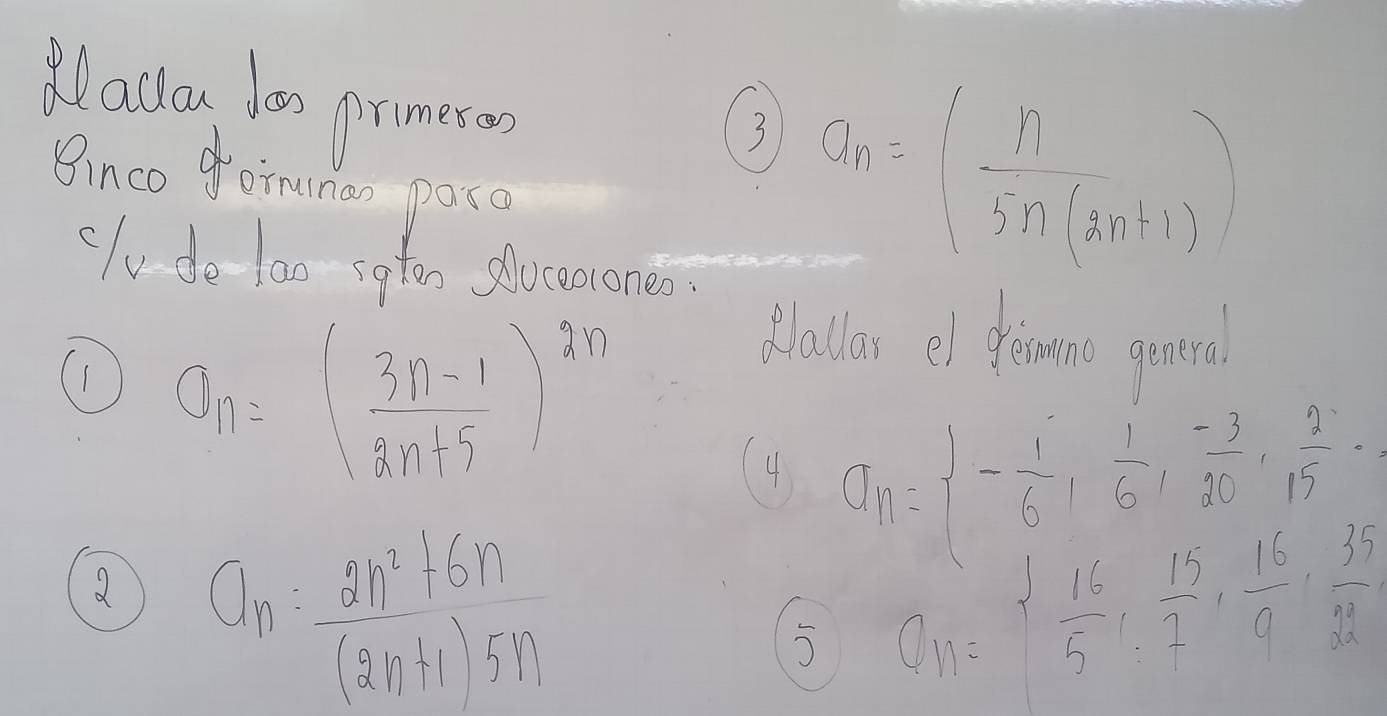 Hallar los primeros
Cinco términos para
c/v de las sgtes sucesiones.
① aₙ = ( (3n-1)/(2n+5) )²ⁿ
② aₙ = (2n²+6n)/((2n+1)5n)
③ aₙ = ( n/(5n(2n+1)) )
Hallar el término general
④ aₙ = { -1/6, 1/6, -3/20, 2/15 ...
⑤ aₙ = { 16/5, 15/7, 16/9, 35/22